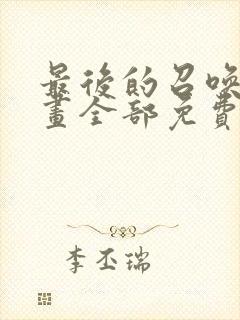 最後的召喚
畫全部免費
李丕瑞